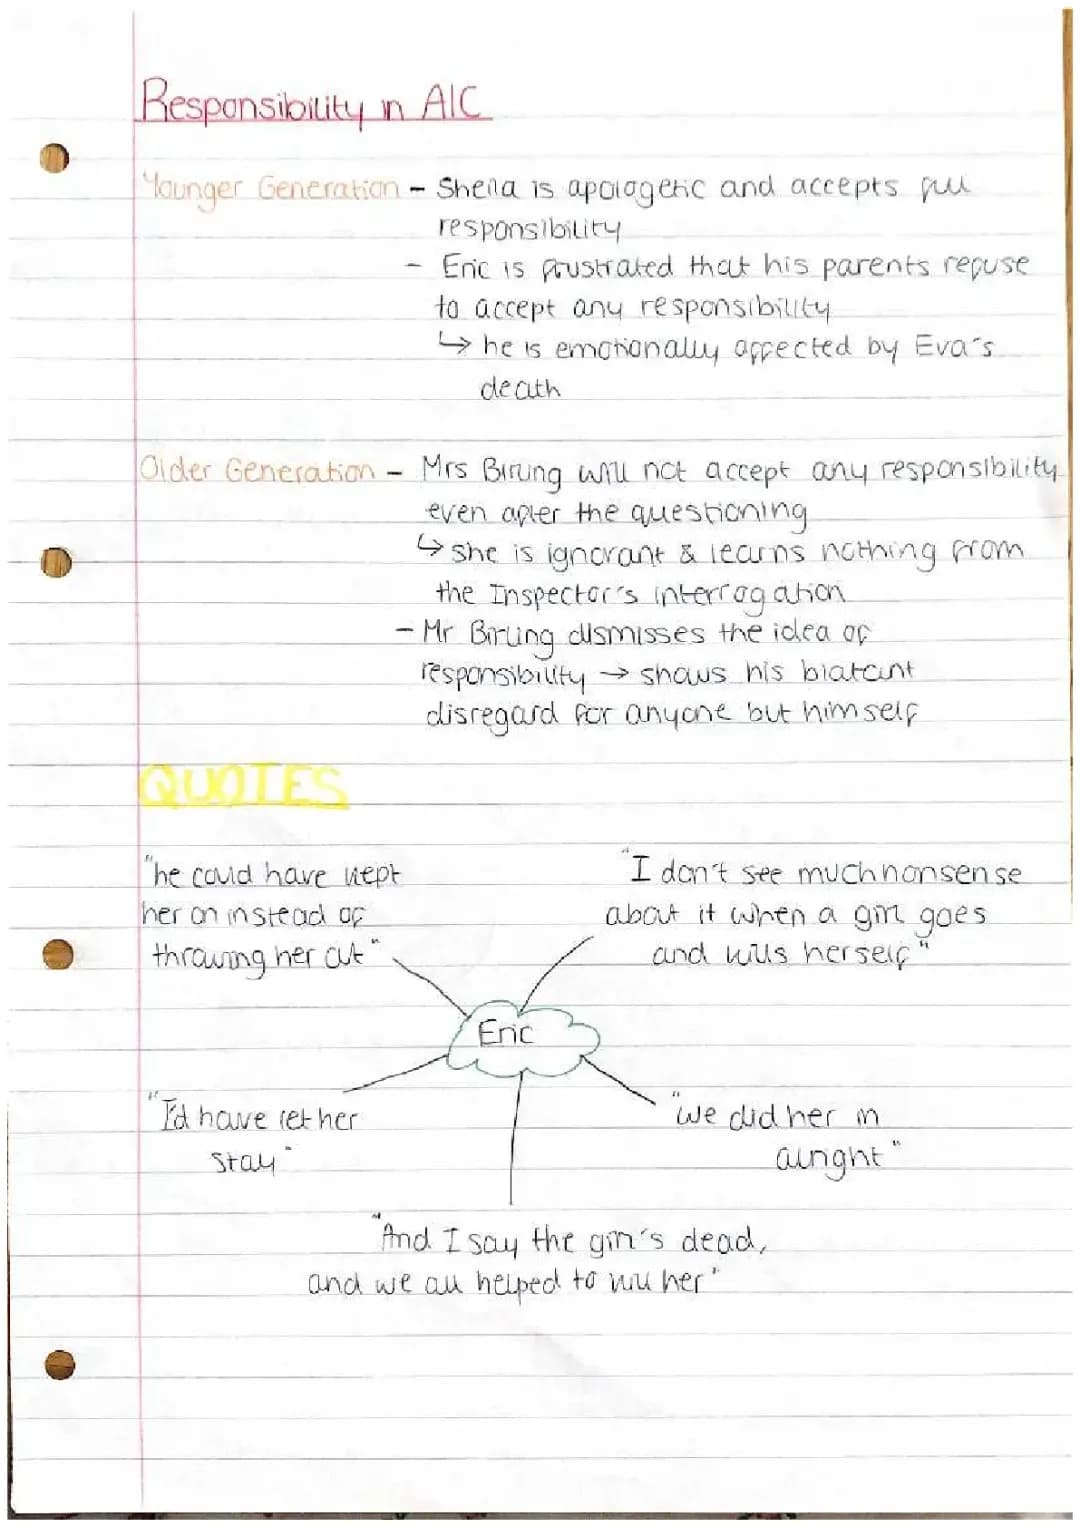 Responsibility in AIC
Younger Generation - Sheila is apologetic and accepts full
responsibility
- Eric is frustrated that his parents refuse
to accept any responsibility
↳ he is emotionally affected by Eva's
death
Older Generation - Mrs Birling will not accept any responsibility
even after the questioning
↳ she is ignorant & learns nothing from
the Inspector's interrogation
- Mr Birling dismisses the idea of
responsibility → shows his blatant
disregard for anyone but himself
QUOTES
"he could have kept
her on instead of
throwing her out"
"I don't see much nonsense
about it when a girl goes
and kills herself"
Eric
"I'd have let her
stay"
"we did her in
alright"
"And I say the girl's dead,
and we all helped to kill her"